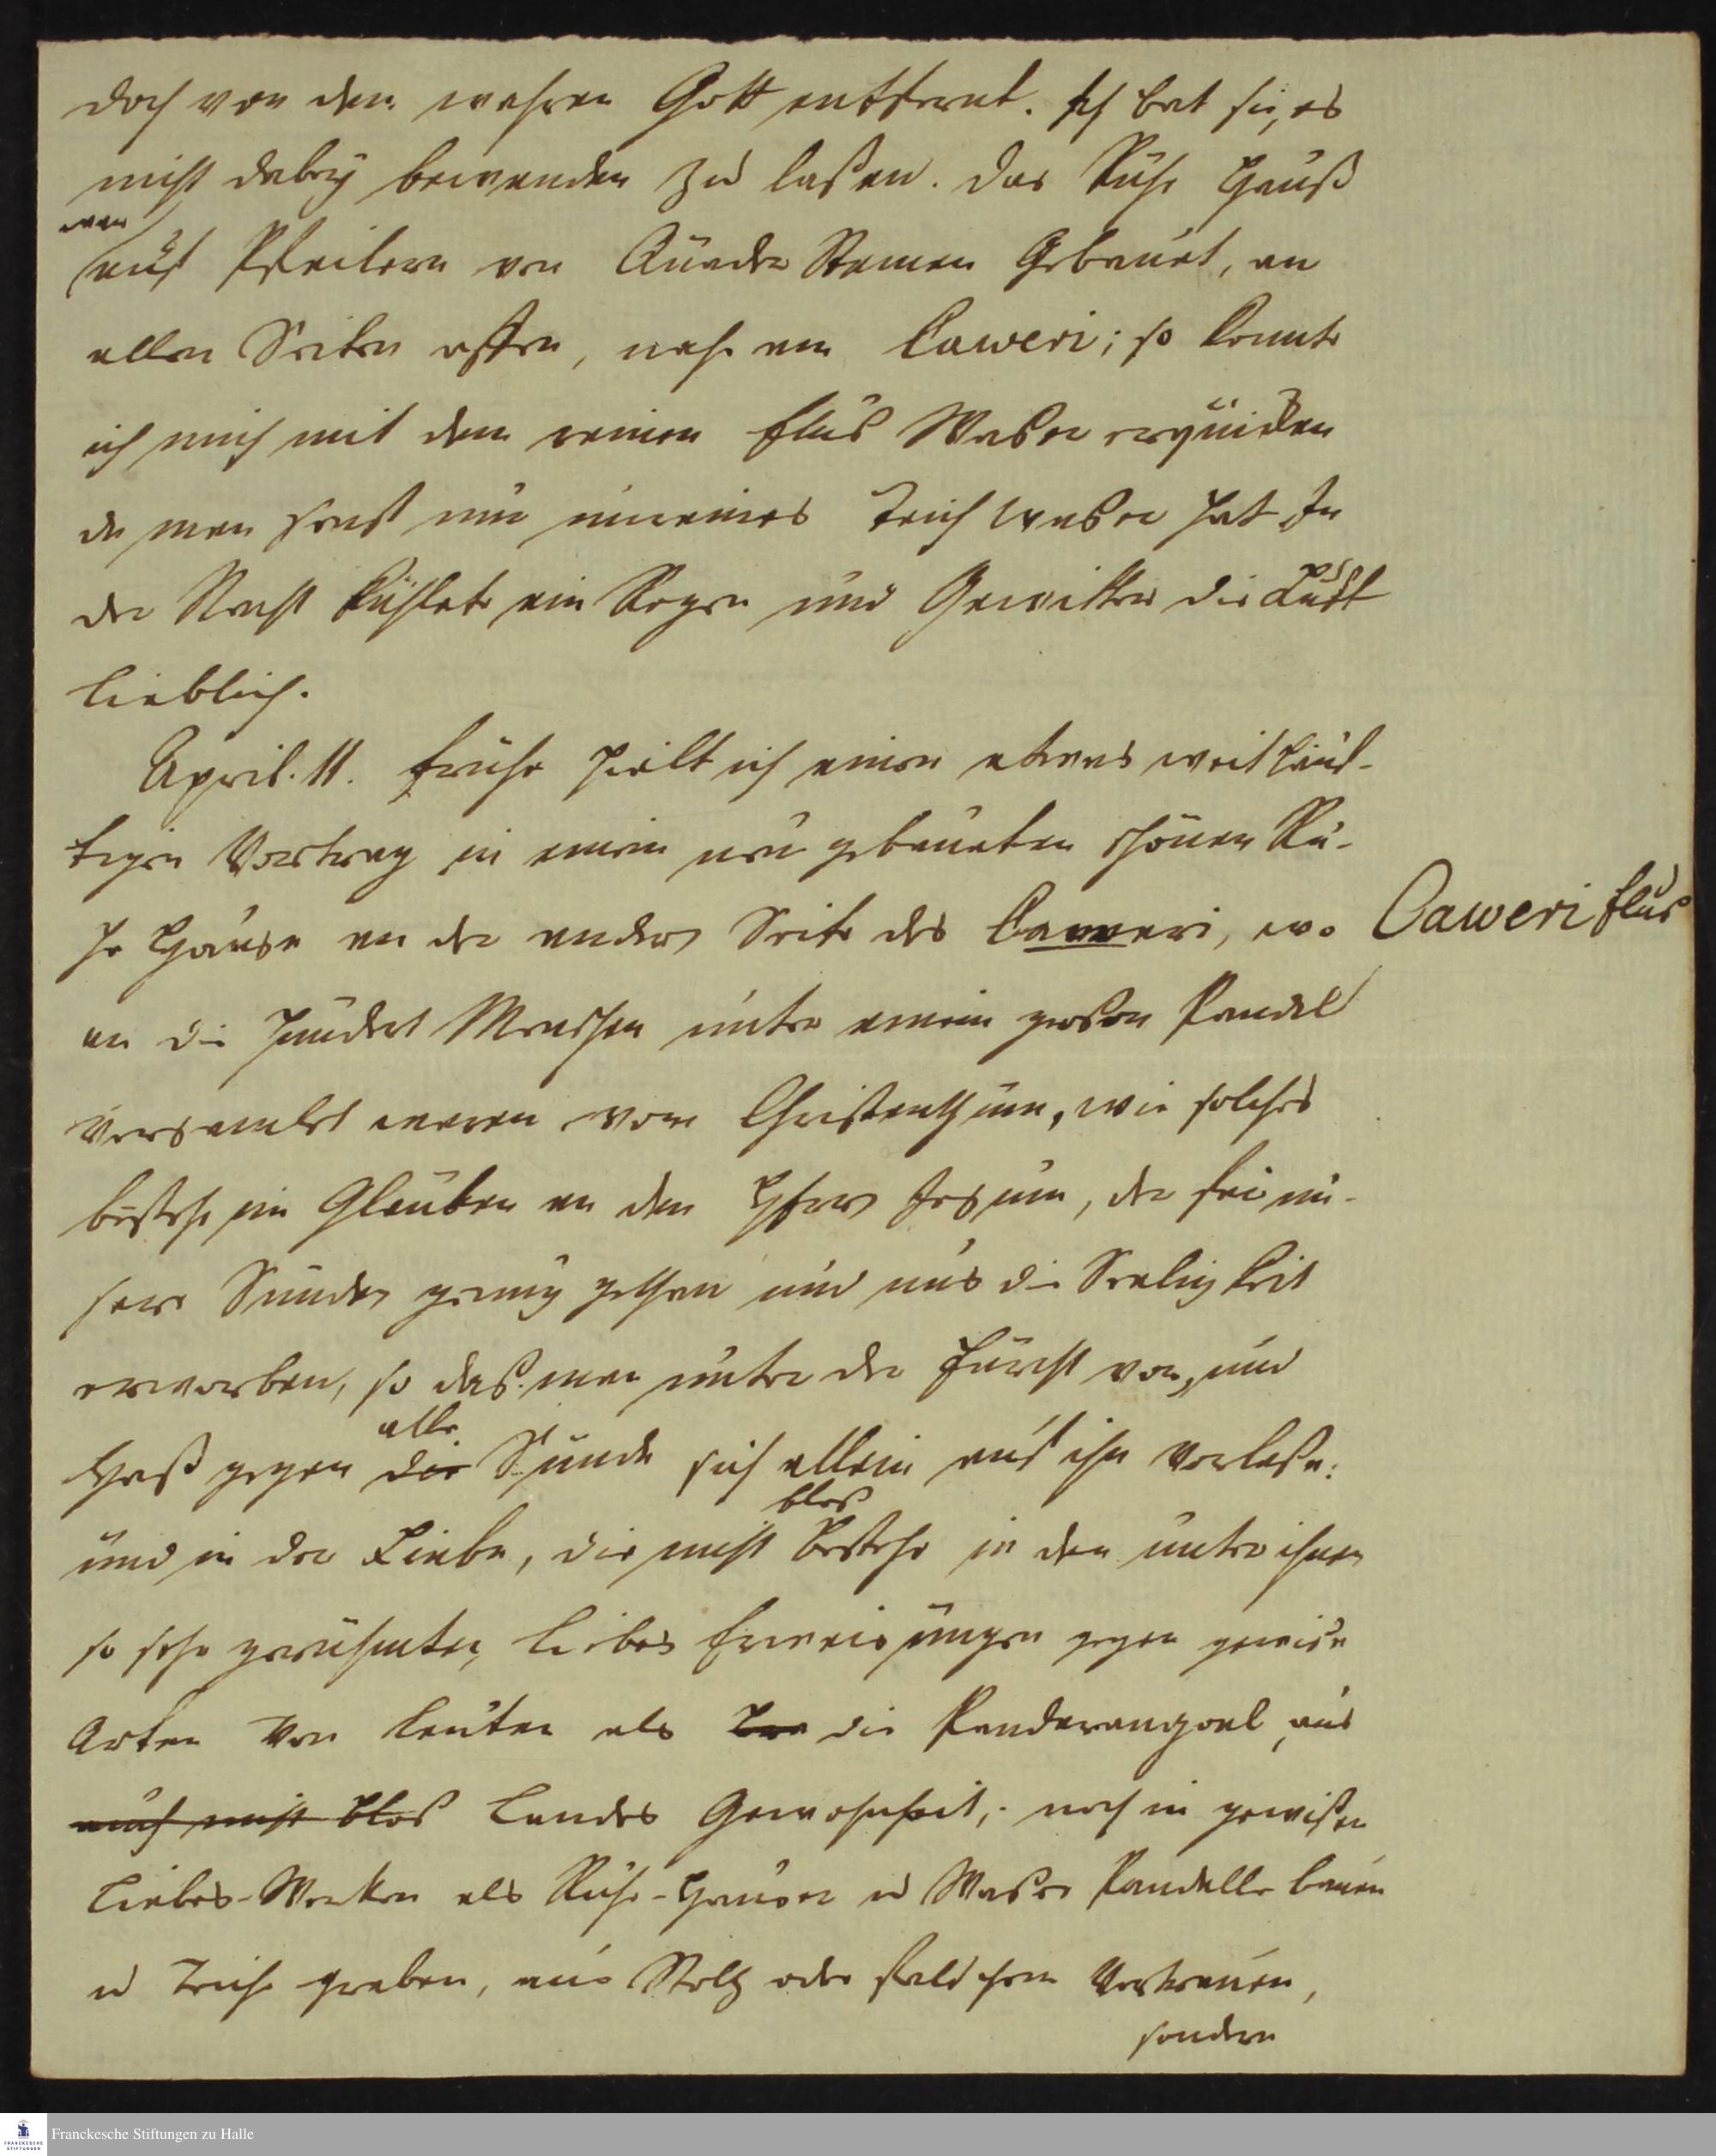 doch von dem wahren Gott entfernt. Ich bat sie, es
nicht dabey bewenden zu laßen. Das Ruhe Hauß
war
auf Pfeilern von Quader Steinen Gebauet, an
allen Seiten offen, nahe am Caweri; so konnte
ich mich mit dem reinen Fluß Waßer erquicken
da man sonst nur unreines Teich Waßer hat. In
der Nacht kühlete ein Regen und Gewitter die Luft
lieblich.
April. 11. Frühe hielt ich einen etwas weitläuf-
tigen Vortrag in einem neu gebaueten schönen Ru-
he Hause an der andern Seite des Caweri, wo
Caweri Fluß
an die hundert Menschen unter einem großen Pandel
versamlet waren vom Christenthum, wie solches
bestehe im Glauben an den Herrn Jesum, der für un-
sere Sünden genug gethan und uns die Seeligkeit
erworben, so daß man unter der Furcht vor, und
alle
Haß gegen die Sünde sich allein auf ihn verlaße:
blos
und in der Liebe, die nicht bestehe in den unter ihnen
so sehr gerühmten Liebes Erweisungen gegen gewiße
Arten von Leuten als die Pandarangoel, aus
auch nicht blos Landes Gewohnheit, noch in gewißen
Liebes-Werken als Ruhe-Häuser u Waßer Pandelle bauen
u Teiche graben, aus Stoltz oder falschem Vertrauen,
sondern
Franckesche Stiftungen zu Halle